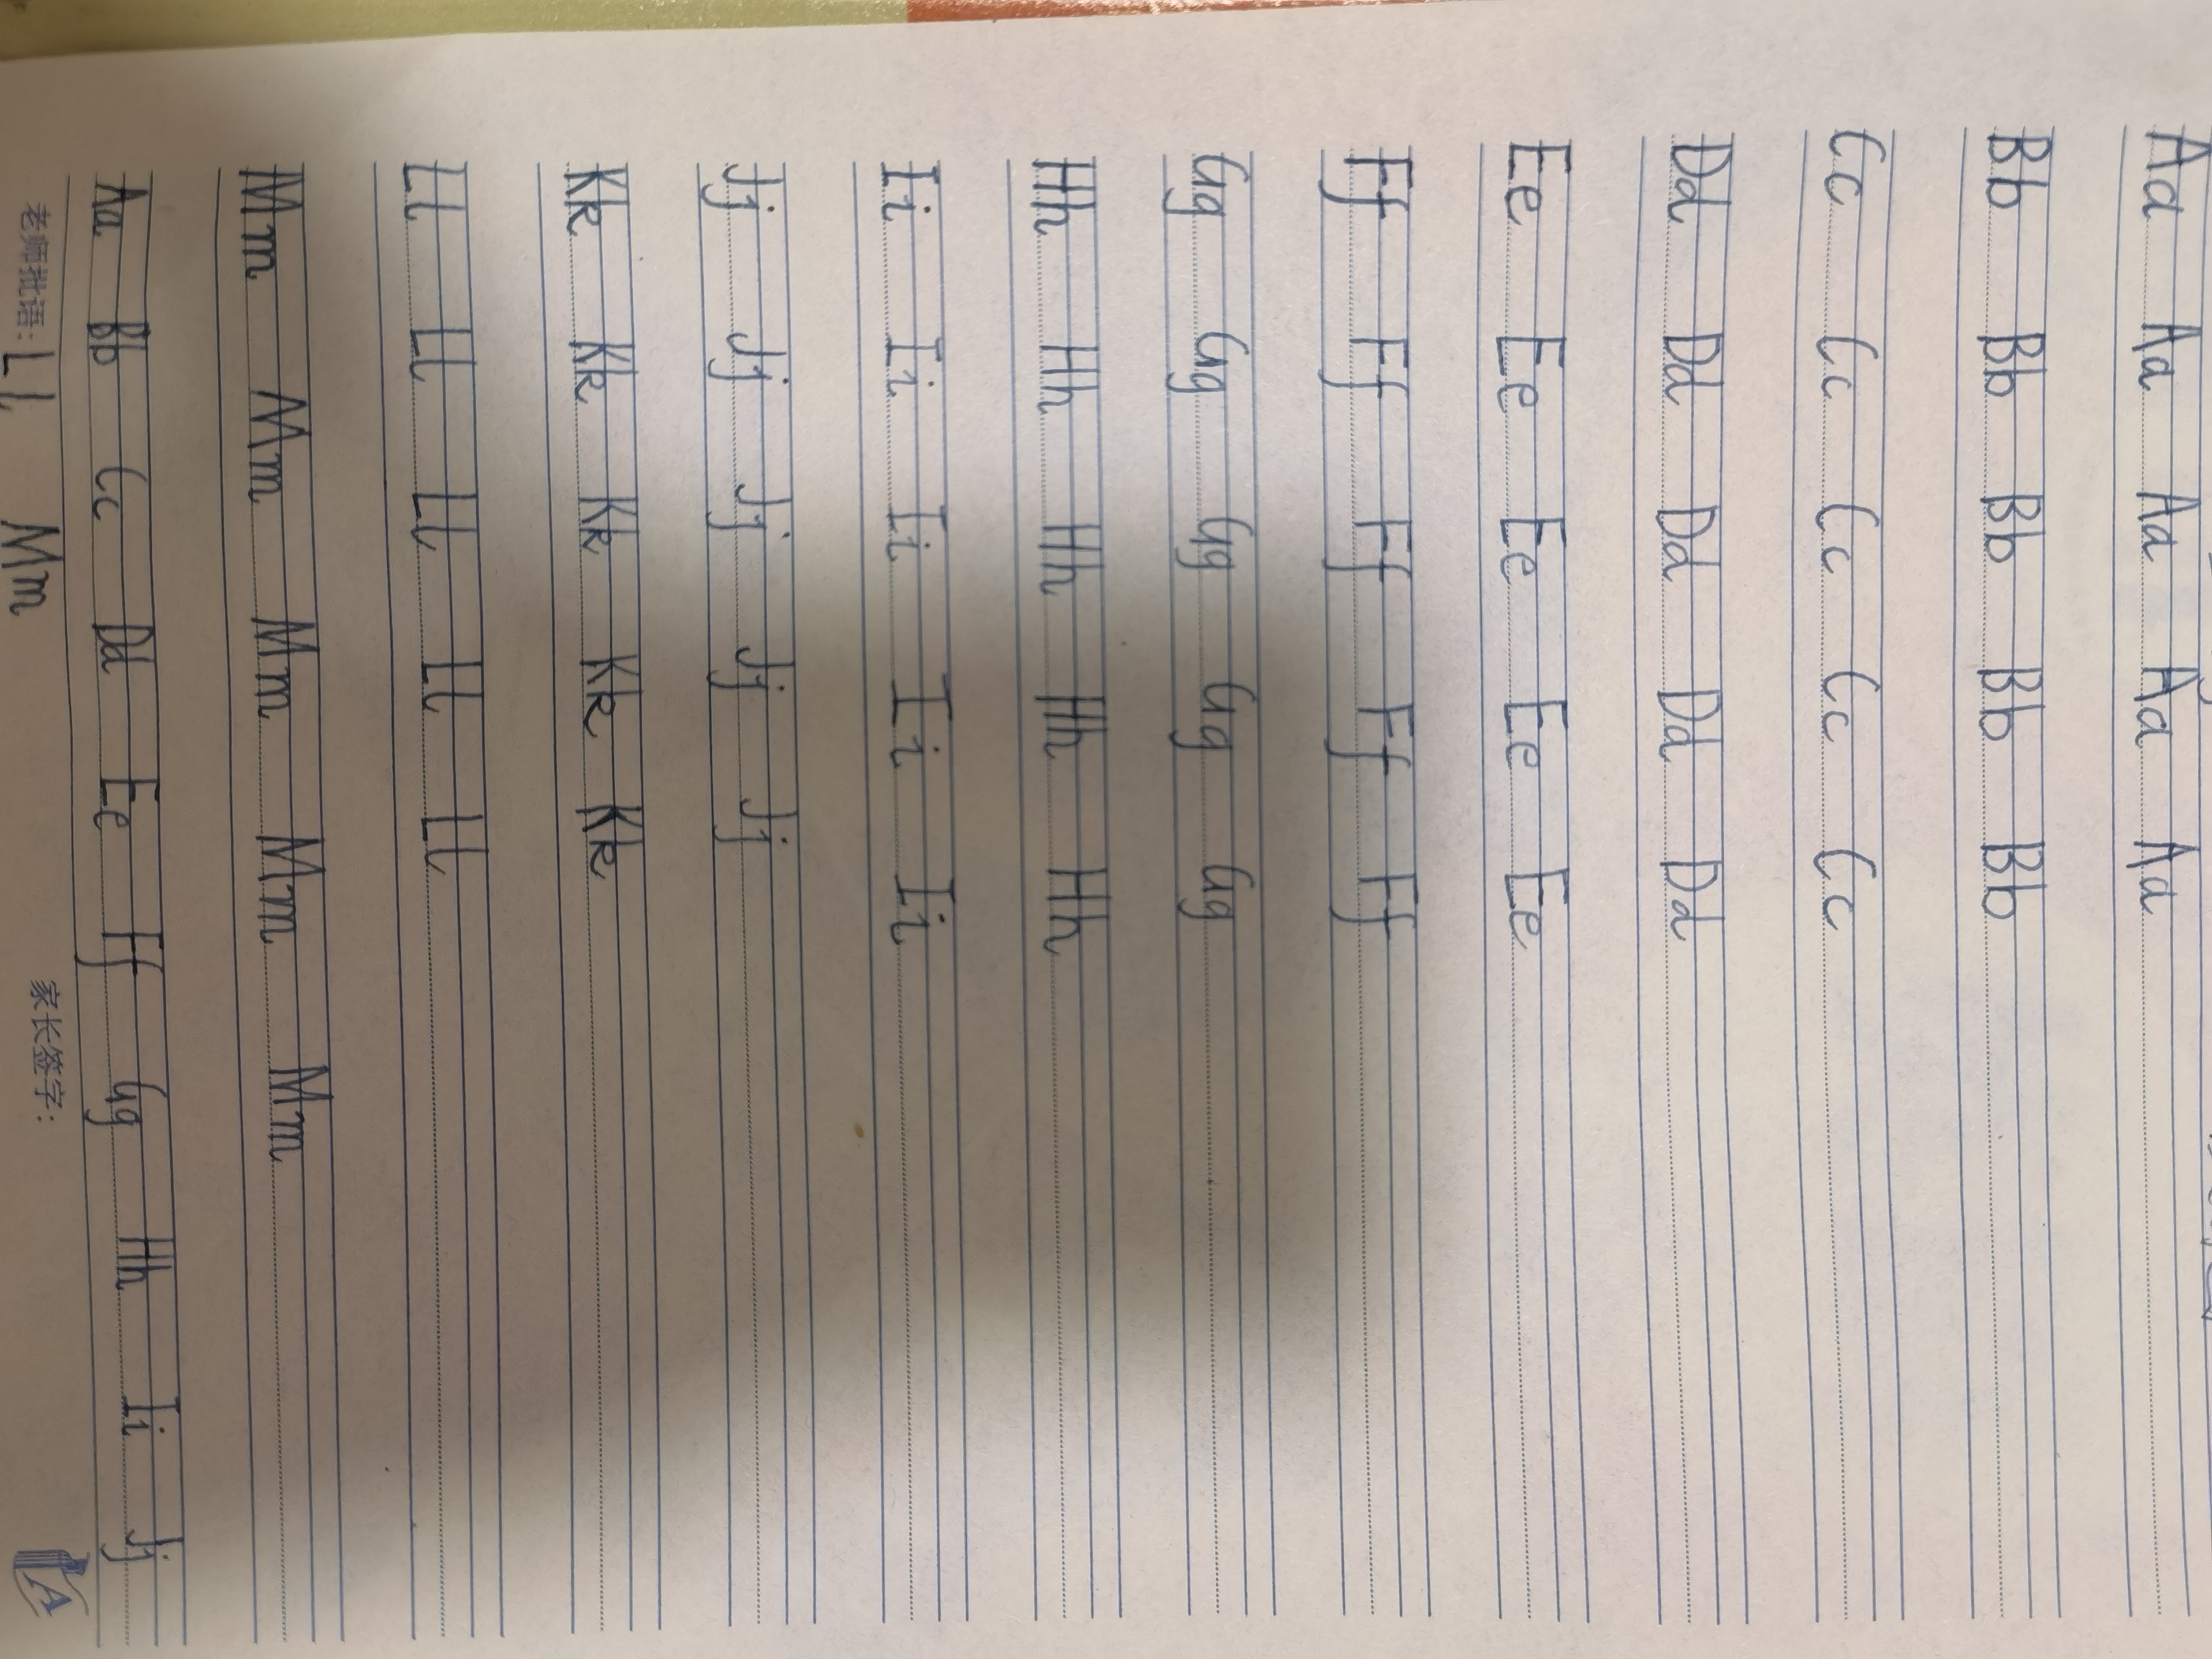 Aa Aa Aa Aa Aa
Bb Bb Bb Bb Bb
Cc Cc Cc Cc Cc
Dd Dd Dd Dd Dd
Ee Ee Ee Ee Ee
Ff Ff Ff Ff Ff
Gg Gg Gg Gg Gg
Hh Hh Hh Hh Hh
Ii Ii Ii Ii Ii
Jj Jj Jj Jj Jj
Kk Kk Kk Kk Kk
Ll Ll Ll Ll Ll
Mm Mm Mm Mm Mm
Aa Bb Cc Dd Ee Ff Gg Hh Ii Jj
老师批语: Ll Mm 家长签字: A